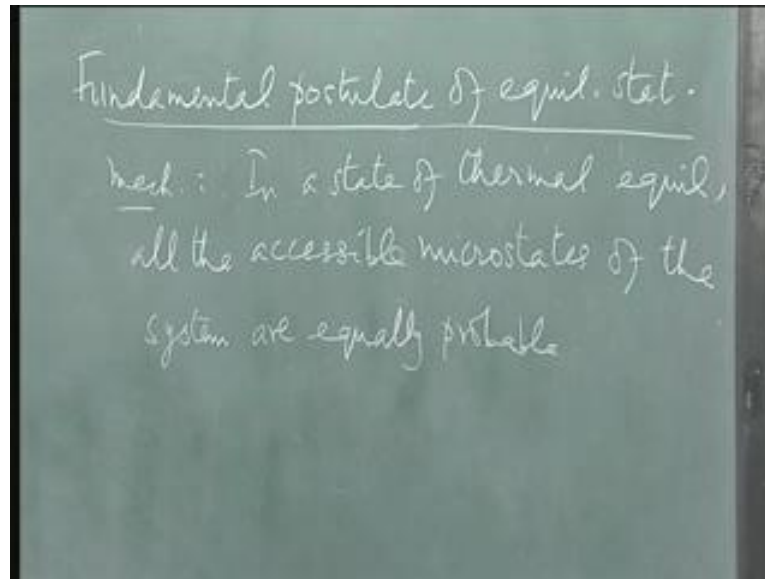 Fundamental postulate of equil. stat.
mech : In a state of thermal equil,
all the accessible microstates of the
system are equally probable